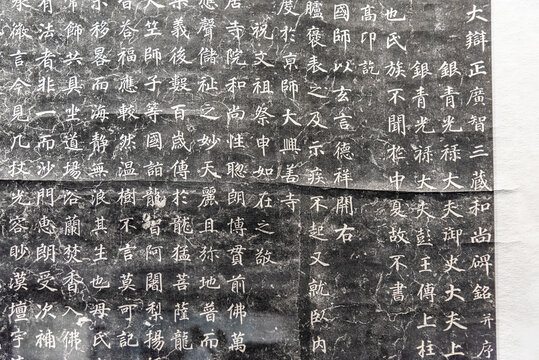 大辯正廣智三藏和尚碑銘并序
銀青光禄大夫御史大夫上
銀青光禄大夫彭王傅上柱
也氏族不聞於中夏故不書
高卬訖
國師以玄言德祥開右
臚褒表之及示疾不起又就臥内
度於京師大興善寺
祝文祖祭申如在之敬
居寺院和尚性聰朗博貫前佛萬
應聲儲祉之妙天麗且弥地普而
義後數百歲傳於龍猛菩薩龍
天竺師子等國詣龍智阿闍梨揚
荅福應較然温樹不言莫可記
示移晷而海靜無浪其生也母氏
常飾共具坐道場浴蘭焚香入佛
有法者非一而沙門惠朗受次補
言今見几杖光容眇漠壇宇